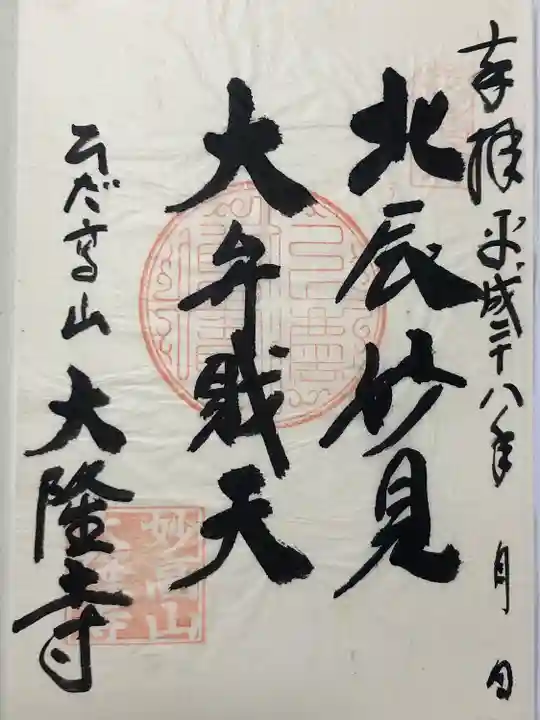 奉拝 平成二十八年 月 日
北辰妙見
大弁財天
ひだ高山 大隆寺
妙高山
大隆寺